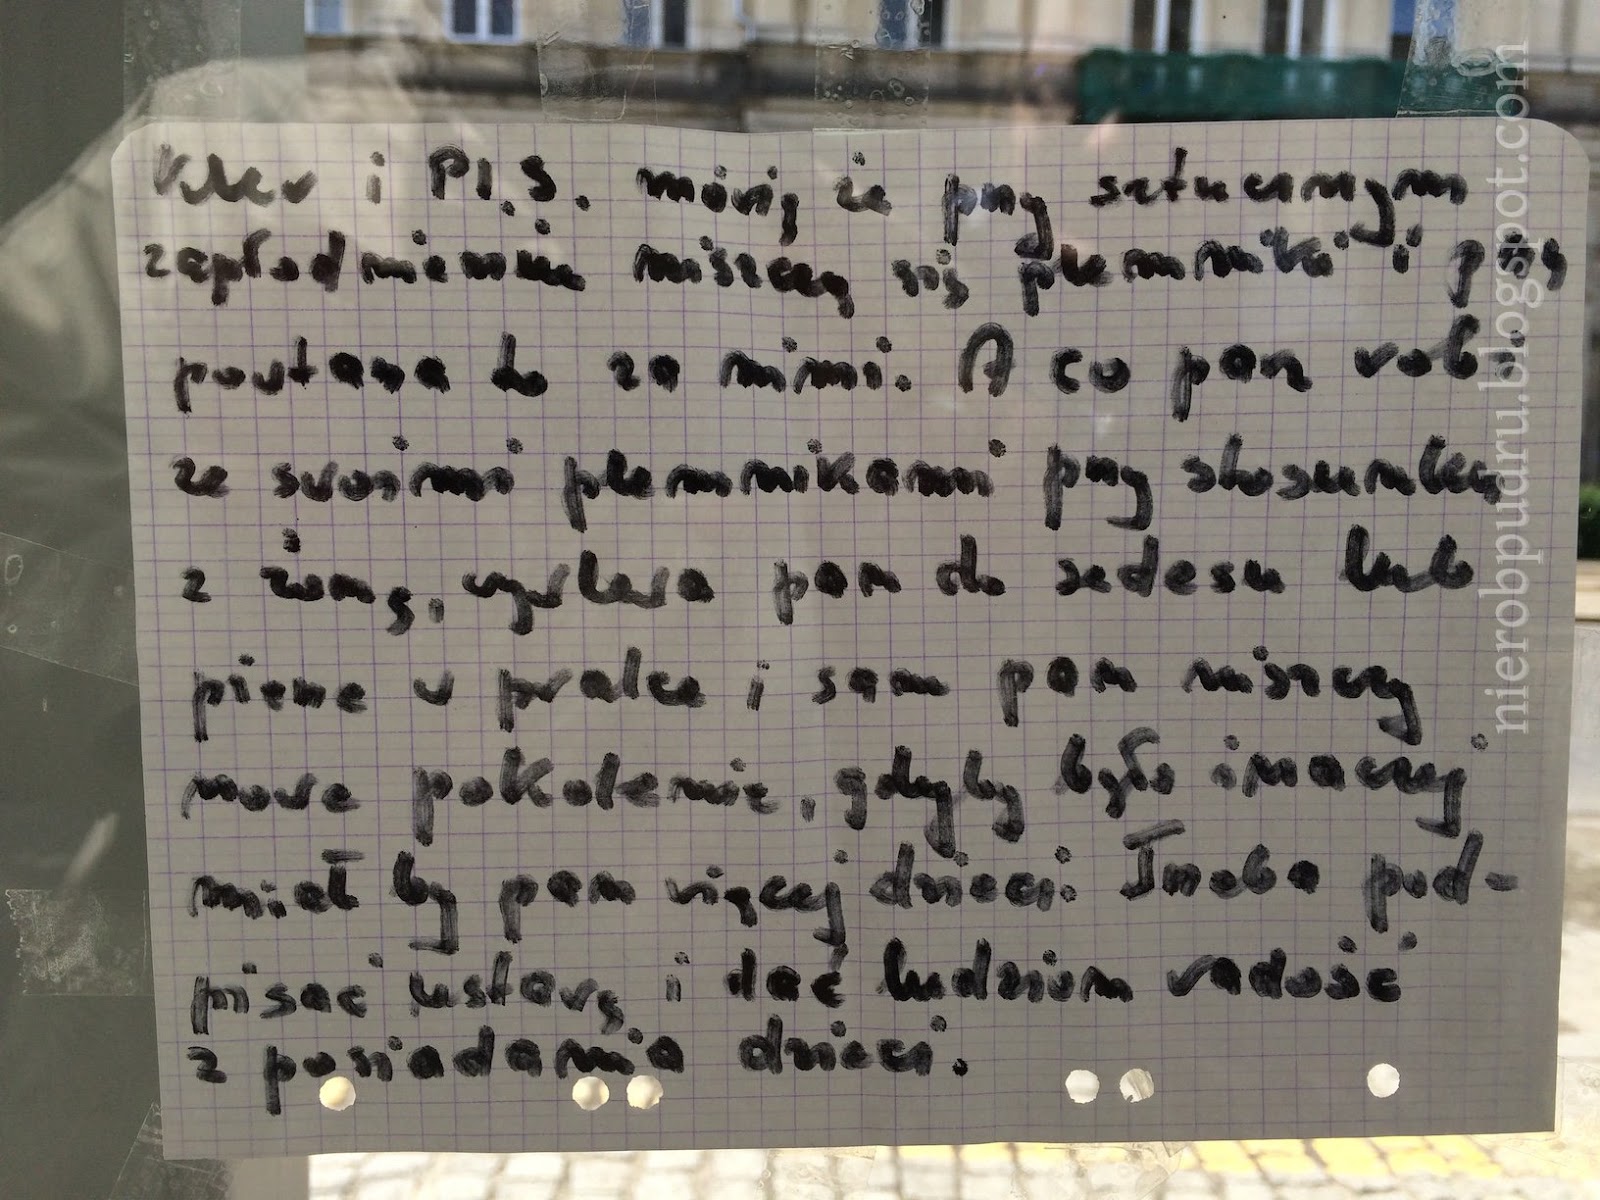 Kler i P.I.S. mówią że przy sztucznym
zapłodnieniu niszczy się plemniki i przy
poutana to za nimi. A co pan robi
ze swoimi plemnikami przy stosunku
z żoną, wyrlewa pan do sedesu lub
pierze w pralce i sam pan niszczy
nowe pokolenie, gdyby było inaczej
miał by pan więcej dzieci. Trzeba pod-
pisać ustawę i dać ludziom radość
z posiadania dzieci.
nierobpudru.blogspot.com